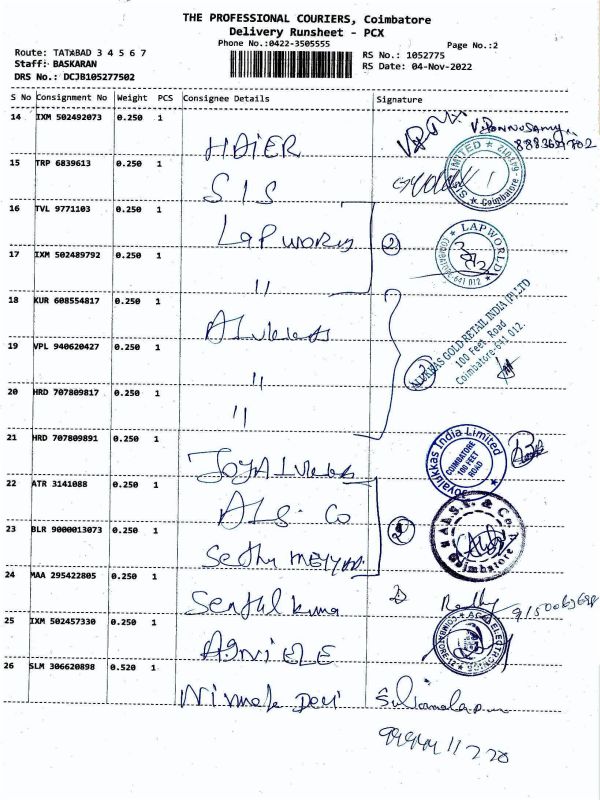 THE PROFESSIONAL COURIERS, Coimbatore
Delivery Runsheet - PCX
Phone No.:0422-3505555
Page No.:2
Route: TATABAD 3 4 5 6 7
RS No.: 1052775
Staff: BASKARAN
RS Date: 04-Nov-2022
DRS No.: DCJB105277502
S No Consignment No Weight PCS Consignee Details Signature
14 IXM 502492073 0.250 1 HAIER V. Ponnusamy
15 TRP 6839613 0.250 1 SIS
SIS LIMITED ★ Coimbatore
16 TVL 9771103 0.250 1 Lap world 2
LAPWORLD 641 012
17 IXM 502489792 0.250 1 "
18 KUR 608554817 0.250 1 Alukkas
ALUKKAS GOLD RETAIL INDIA (P) LTD
100 Feet Road
Coimbatore-641 012.
19 VPL 940620427 0.250 1 " 3
20 HRD 707809817 0.250 1 "
21 HRD 707809891 0.250 1 Joyalukkas
Joyalukkas India Limited
COIMBATORE
100 FEET
ROAD
22 ATR 3141088 0.250 1 ALS. Co
& Co. Coimbatore
23 BLR 9000013073 0.250 1 Sethu 2
24 MAA 295422805 0.250 1 Senthil kumar
25 IXM 502457330 0.250 1 Agni ELE
26 SLM 306620898 0.520 1 Nirmala Devi